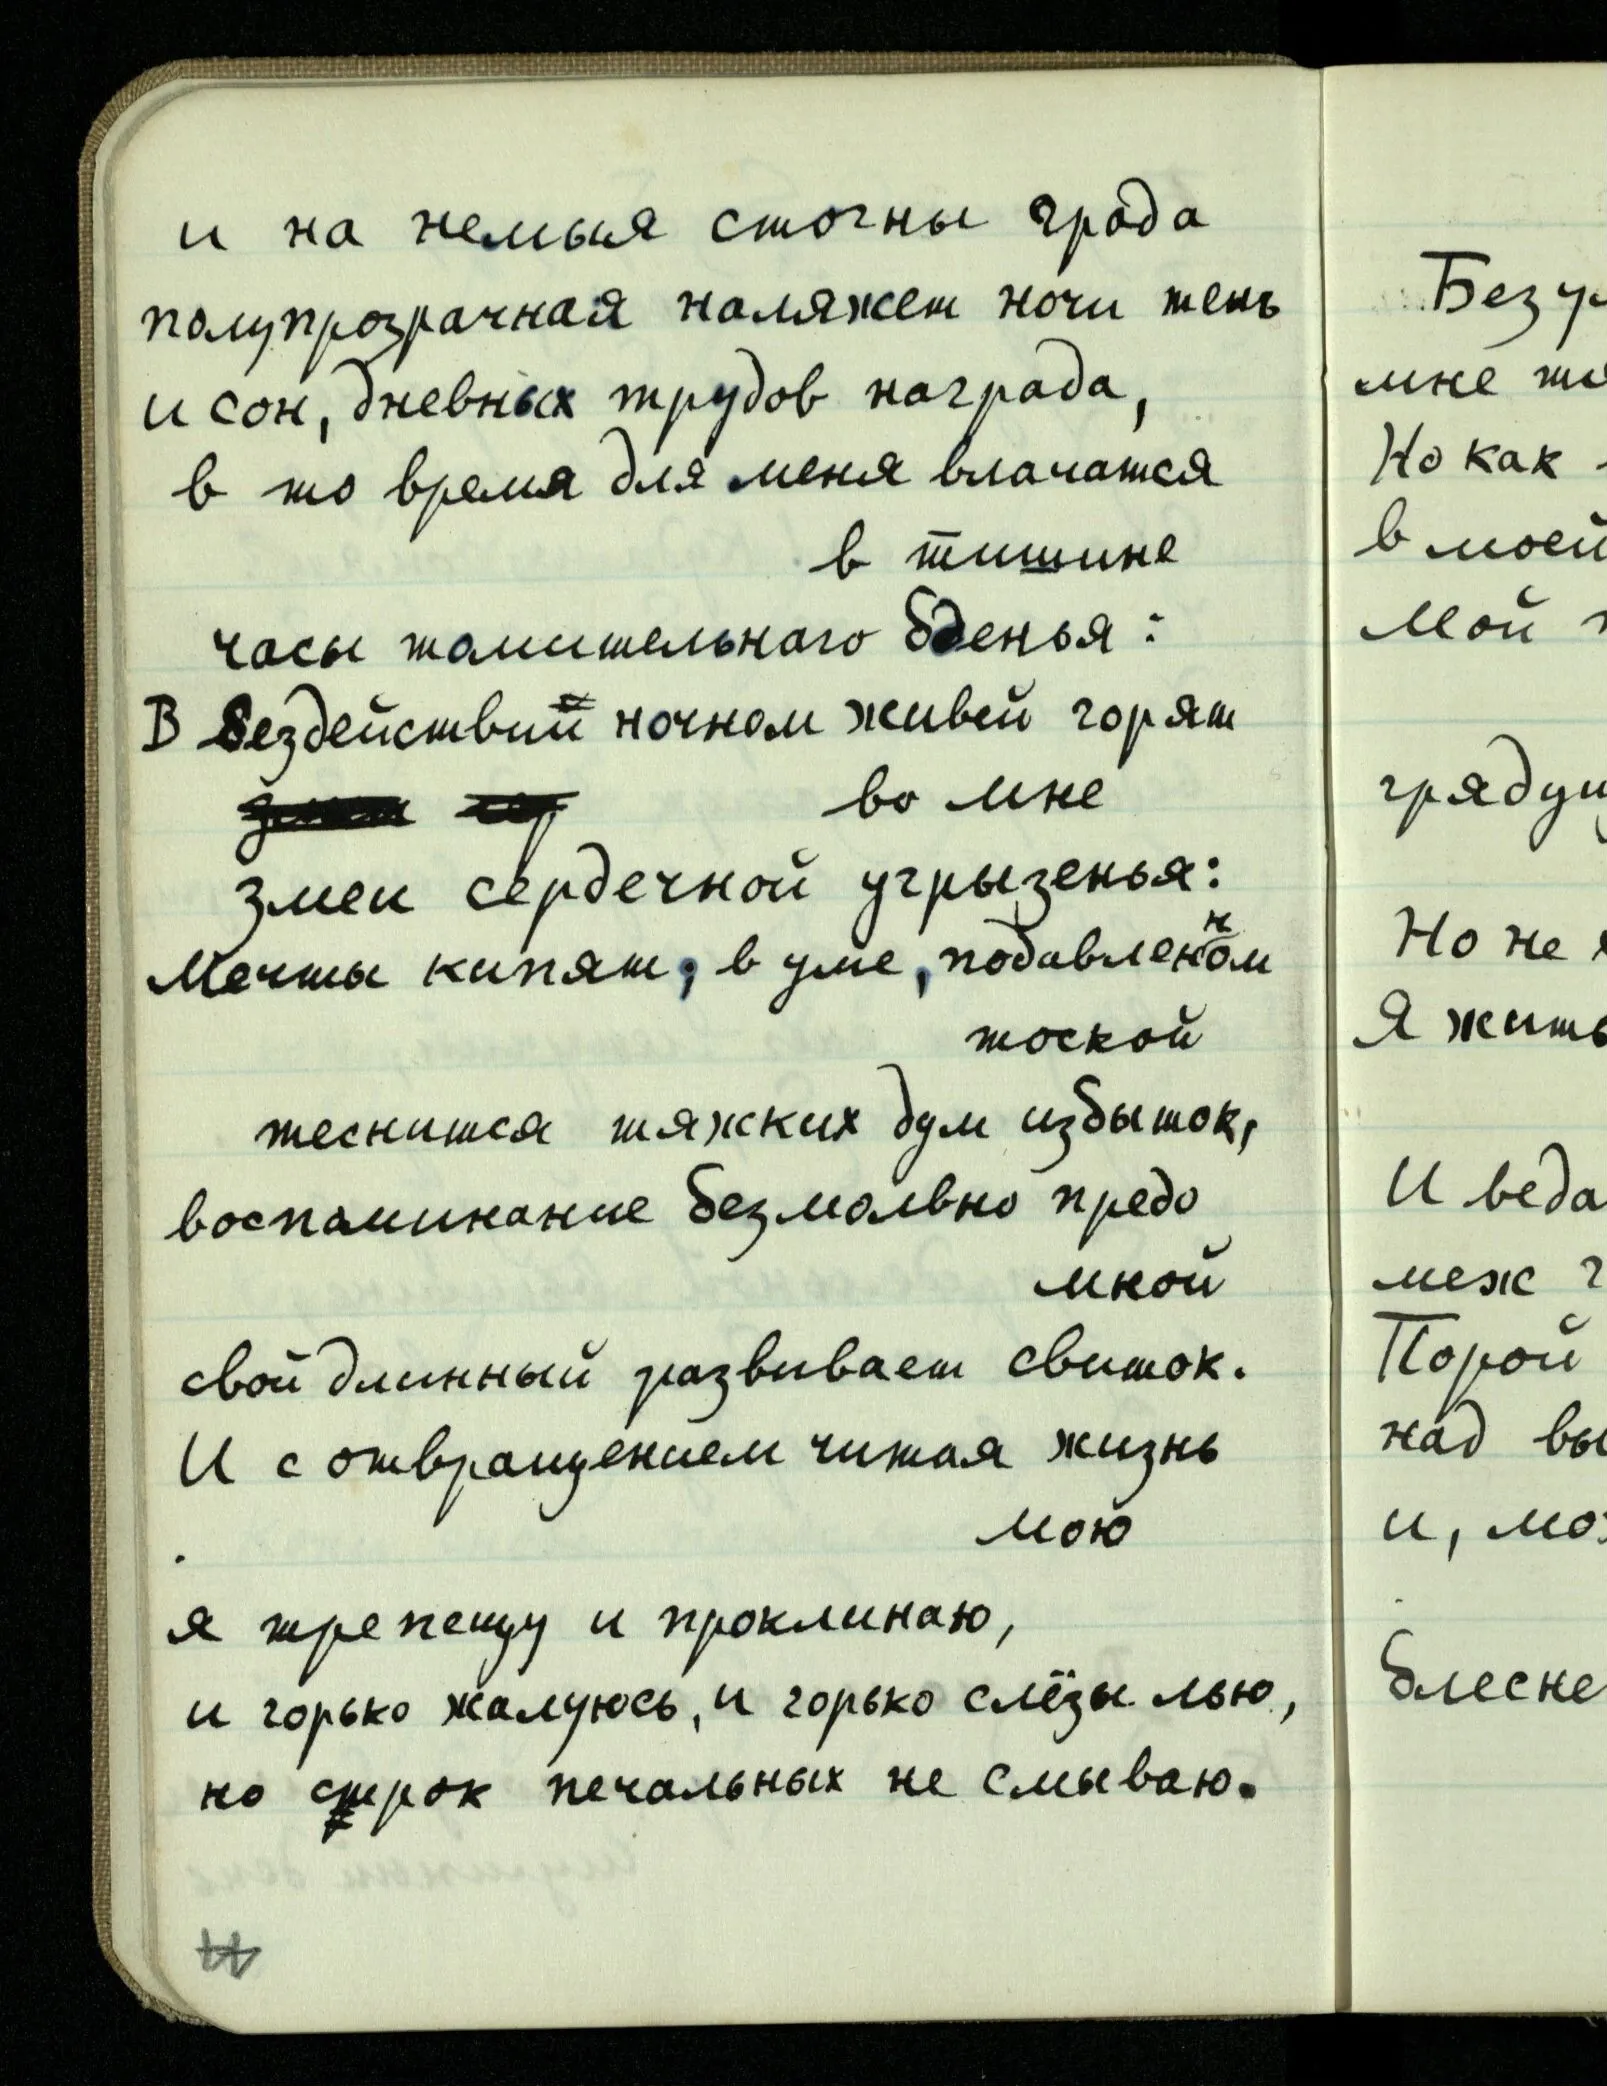 и на немыя стогны града
полупрозрачная наляжет ночи тень
и сон, дневных трудов награда,
в то время для меня влачатся
в тишине
часы томительнаго бденья:
В бездействии ночном живей горят
во мне
змеи сердечной угрызенья:
Мечты кипят; в уме, подавленном
тоской
теснится тяжких дум избыток,
воспоминание безмолвно предо
мной
свой длинный развивает свиток.
И с отвращением читая жизнь
мою
я трепещу и проклинаю,
и горько жалуюсь, и горько слёзы лью,
но строк печальных не смываю.
Безу
мне
Но как
в моей
Мой
грядущ
Но не
Я жить
И веда
меж г
Порой
над
и, мо
блесне